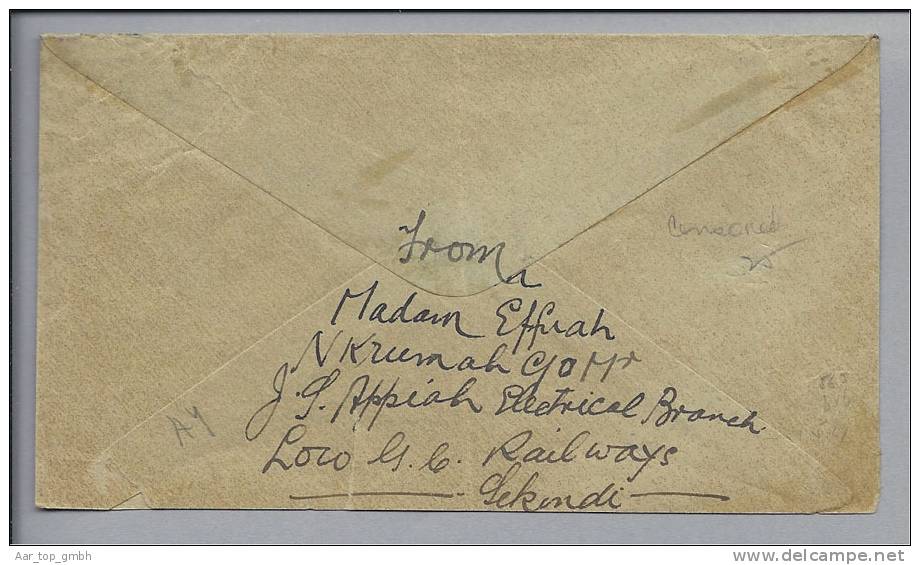 From
Madam Effuah
Nkrumah c/o Mr
J. S. Appiah Electrical Branch
Loco G. C. Railways
Sekondi
Censored
25
AY
Aar_top_gmbh
www.delcampe.net